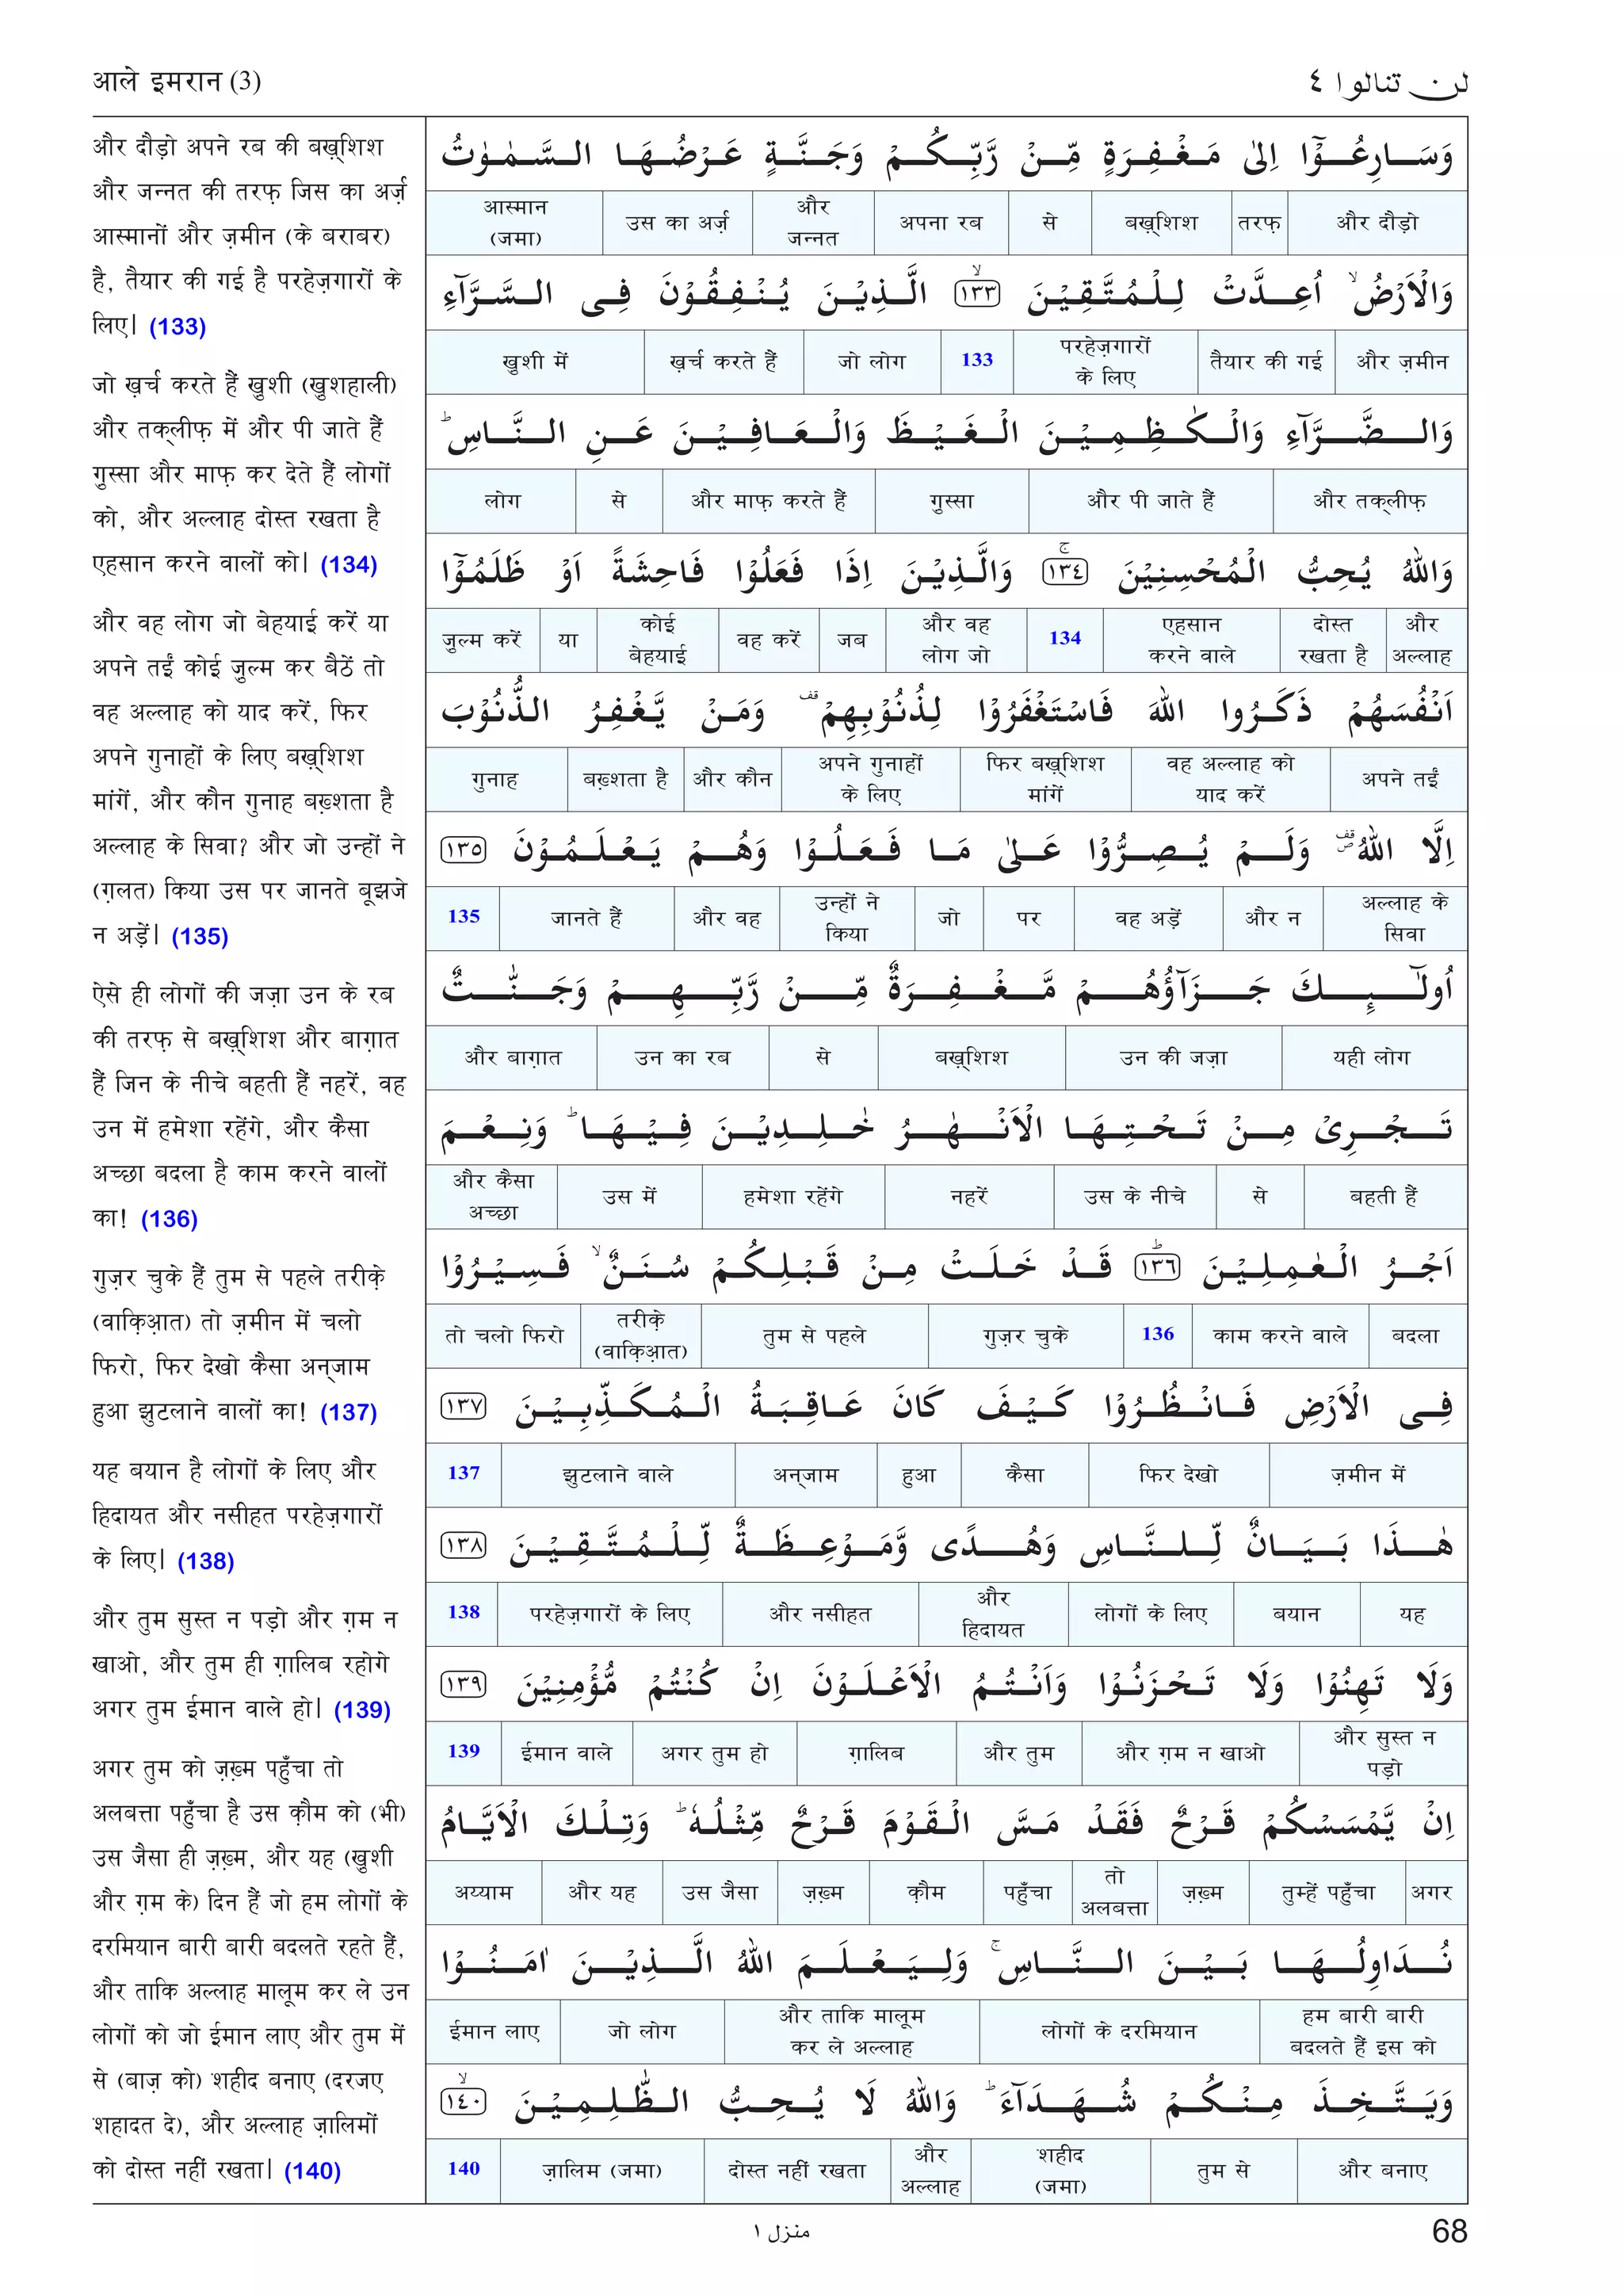 आले इमरान (3)
لن تنالوا ٤
और दौड़ो अपने रब की बख़्शिश
और जन्नत की तरफ़ जिस का अर्ज़
आस्मानों और ज़मीन (के बराबर)
है, तैयार की गई है परहेज़गारों के
लिए| (133)
जो ख़र्च करते हैं खुशी (खुशहाली)
और तक्लीफ़ में और पी जाते हैं
गुस्सा और माफ़ कर देते हैं लोगों
को, और अल्लाह दोस्त रखता है
एहसान करने वालों को| (134)
और वह लोग जो बेहयाई करें या
अपने तईं कोई जुल्म कर बैठें तो
वह अल्लाह को याद करें, फिर
अपने गुनाहों के लिए बख़्शिश
मांगें, और कौन गुनाह बख़्शता है
अल्लाह के सिवा? और जो उन्हों ने
(ग़लत) किया उस पर जानते बूझते
न अड़ें| (135)
ऐसे ही लोगों की जज़ा उन के रब
की तरफ़ से बख़्शिश और बाग़ात
हैं जिन के नीचे बहती हैं नहरें, वह
उन में हमेशा रहेंगे, और कैसा
अच्छा बदला है काम करने वालों
का! (136)
गुज़र चुके हैं तुम से पहले तरीक़े
(वाक़िआ़त) तो ज़मीन में चलो
फिरो, फिर देखो कैसा अन्जाम
हुआ झुटलाने वालों का! (137)
यह बयान है लोगों के लिए और
हिदायत और नसीहत परहेज़गारों
के लिए| (138)
और तुम सुस्त न पड़ो और ग़म न
खाओ, और तुम ही ग़ालिब रहोगे
अगर तुम ईमान वाले हो| (139)
अगर तुम को ज़ख़्म पहुँचा तो
अलबत्ता पहुँचा है उस क़ौम को (भी)
उस जैसा ही ज़ख़्म, और यह (खुशी
और ग़म के) दिन हैं जो हम लोगों के
दरमियान बारी बारी बदलते रहते हैं,
और ताकि अल्लाह मालूम कर ले उन
लोगों को जो ईमान लाए और तुम में
से (बाज़ को) शहीद बनाए (दरजए
शहादत दे), और अल्लाह ज़ालिमों
को दोस्त नहीं रखता| (140)
وَسَارِعُوْٓا اِلٰى مَغْفِرَةٍ مِّنْ رَّبِّكُمْ وَجَنَّةٍ عَرْضُهَا السَّمٰوٰتُ
और दौड़ो तरफ़ बख़्शिश से अपना रब और जन्नत उस का अर्ज़ आस्मान (जमा)
وَالْاَرْضُ ۙ اُعِدَّتْ لِلْمُتَّقِيْنَ ۙ ١٣٣ الَّذِيْنَ يُنْفِقُوْنَ فِى السَّرَّآءِ
और ज़मीन तैयार की गई परहेज़गारों के लिए 133 जो लोग ख़र्च करते हैं खुशी में
وَالضَّرَّآءِ وَالْكٰظِمِيْنَ الْغَيْظَ وَالْعَافِيْنَ عَنِ النَّاسِ ؕ
और तक्लीफ़ और पी जाते हैं गुस्सा और माफ़ करते हैं से लोग
وَاللّٰهُ يُحِبُّ الْمُحْسِنِيْنَ ۚ ١٣٤ وَالَّذِيْنَ اِذَا فَعَلُوْا فَاحِشَةً اَوْ ظَلَمُوْٓا
और अल्लाह दोस्त रखता है एहसान करने वाले 134 और वह लोग जो जब वह करें कोई बेहयाई या जुल्म करें
اَنْفُسَهُمْ ذَكَرُوا اللّٰهَ فَاسْتَغْفَرُوْا لِذُنُوْبِهِمْ ۫ وَمَنْ يَّغْفِرُ الذُّنُوْبَ
अपने तईं वह अल्लाह को याद करें फिर बख़्शिश मांगें अपने गुनाहों के लिए और कौन बख़्शता है गुनाह
اِلَّا اللّٰهُ ۪۫ وَلَمْ يُصِرُّوْا عَلٰى مَا فَعَلُوْا وَهُمْ يَعْلَمُوْنَ ١٣٥
अल्लाह के सिवा और न वह अड़ें पर जो उन्हों ने किया और वह जानते हैं 135
اُولٰٓئِكَ جَزَآؤُهُمْ مَّغْفِرَةٌ مِّنْ رَّبِّهِمْ وَجَنّٰتٌ
यही लोग उन की जज़ा बख़्शिश से उन का रब और बाग़ात
تَجْرِىْ مِنْ تَحْتِهَا الْاَنْهٰرُ خٰلِدِيْنَ فِيْهَا ؕ وَنِعْمَ
बहती हैं से उस के नीचे नहरें हमेशा रहेंगे उस में और कैसा अच्छा
اَجْرُ الْعٰمِلِيْنَ ؕ ١٣٦ قَدْ خَلَتْ مِنْ قَبْلِكُمْ سُنَنٌ ۙ فَسِيْرُوْا
बदला काम करने वाले 136 गुज़र चुके तुम से पहले तरीक़े (वाक़िआ़त) तो चलो फिरो
فِى الْاَرْضِ فَانْظُرُوْا كَيْفَ كَانَ عَاقِبَةُ الْمُكَذِّبِيْنَ ١٣٧
ज़मीन में फिर देखो कैसा हुआ अन्जाम झुटलाने वाले 137
هٰذَا بَيَانٌ لِّلنَّاسِ وَهُدًى وَّمَوْعِظَةٌ لِّلْمُتَّقِيْنَ ١٣٨
यह बयान लोगों के लिए और हिदायत और नसीहत परहेज़गारों के लिए 138
وَلَا تَهِنُوْا وَلَا تَحْزَنُوْا وَاَنْتُمُ الْاَعْلَوْنَ اِنْ كُنْتُمْ مُّؤْمِنِيْنَ ١٣٩
और सुस्त न पड़ो और ग़म न खाओ और तुम ग़ालिब अगर तुम हो ईमान वाले 139
اِنْ يَّمْسَسْكُمْ قَرْحٌ فَقَدْ مَسَّ الْقَوْمَ قَرْحٌ مِّثْلُهٗ ؕ وَتِلْكَ الْاَيَّامُ
अगर तुम्हें पहुँचा ज़ख़्म तो अलबत्ता पहुँचा क़ौम ज़ख़्म उस जैसा और यह अय्याम
نُدَاوِلُهَا بَيْنَ النَّاسِ ۚ وَلِيَعْلَمَ اللّٰهُ الَّذِيْنَ اٰمَنُوْا
हम बारी बारी बदलते हैं इस को लोगों के दरमियान और ताकि मालूम कर ले अल्लाह जो लोग ईमान लाए
وَيَتَّخِذَ مِنْكُمْ شُهَدَآءَ ؕ وَاللّٰهُ لَا يُحِبُّ الظّٰلِمِيْنَ ۙ ١٤٠
और बनाए तुम से शहीद (जमा) और अल्लाह दोस्त नहीं रखता ज़ालिम (जमा) 140
منزل ١
68